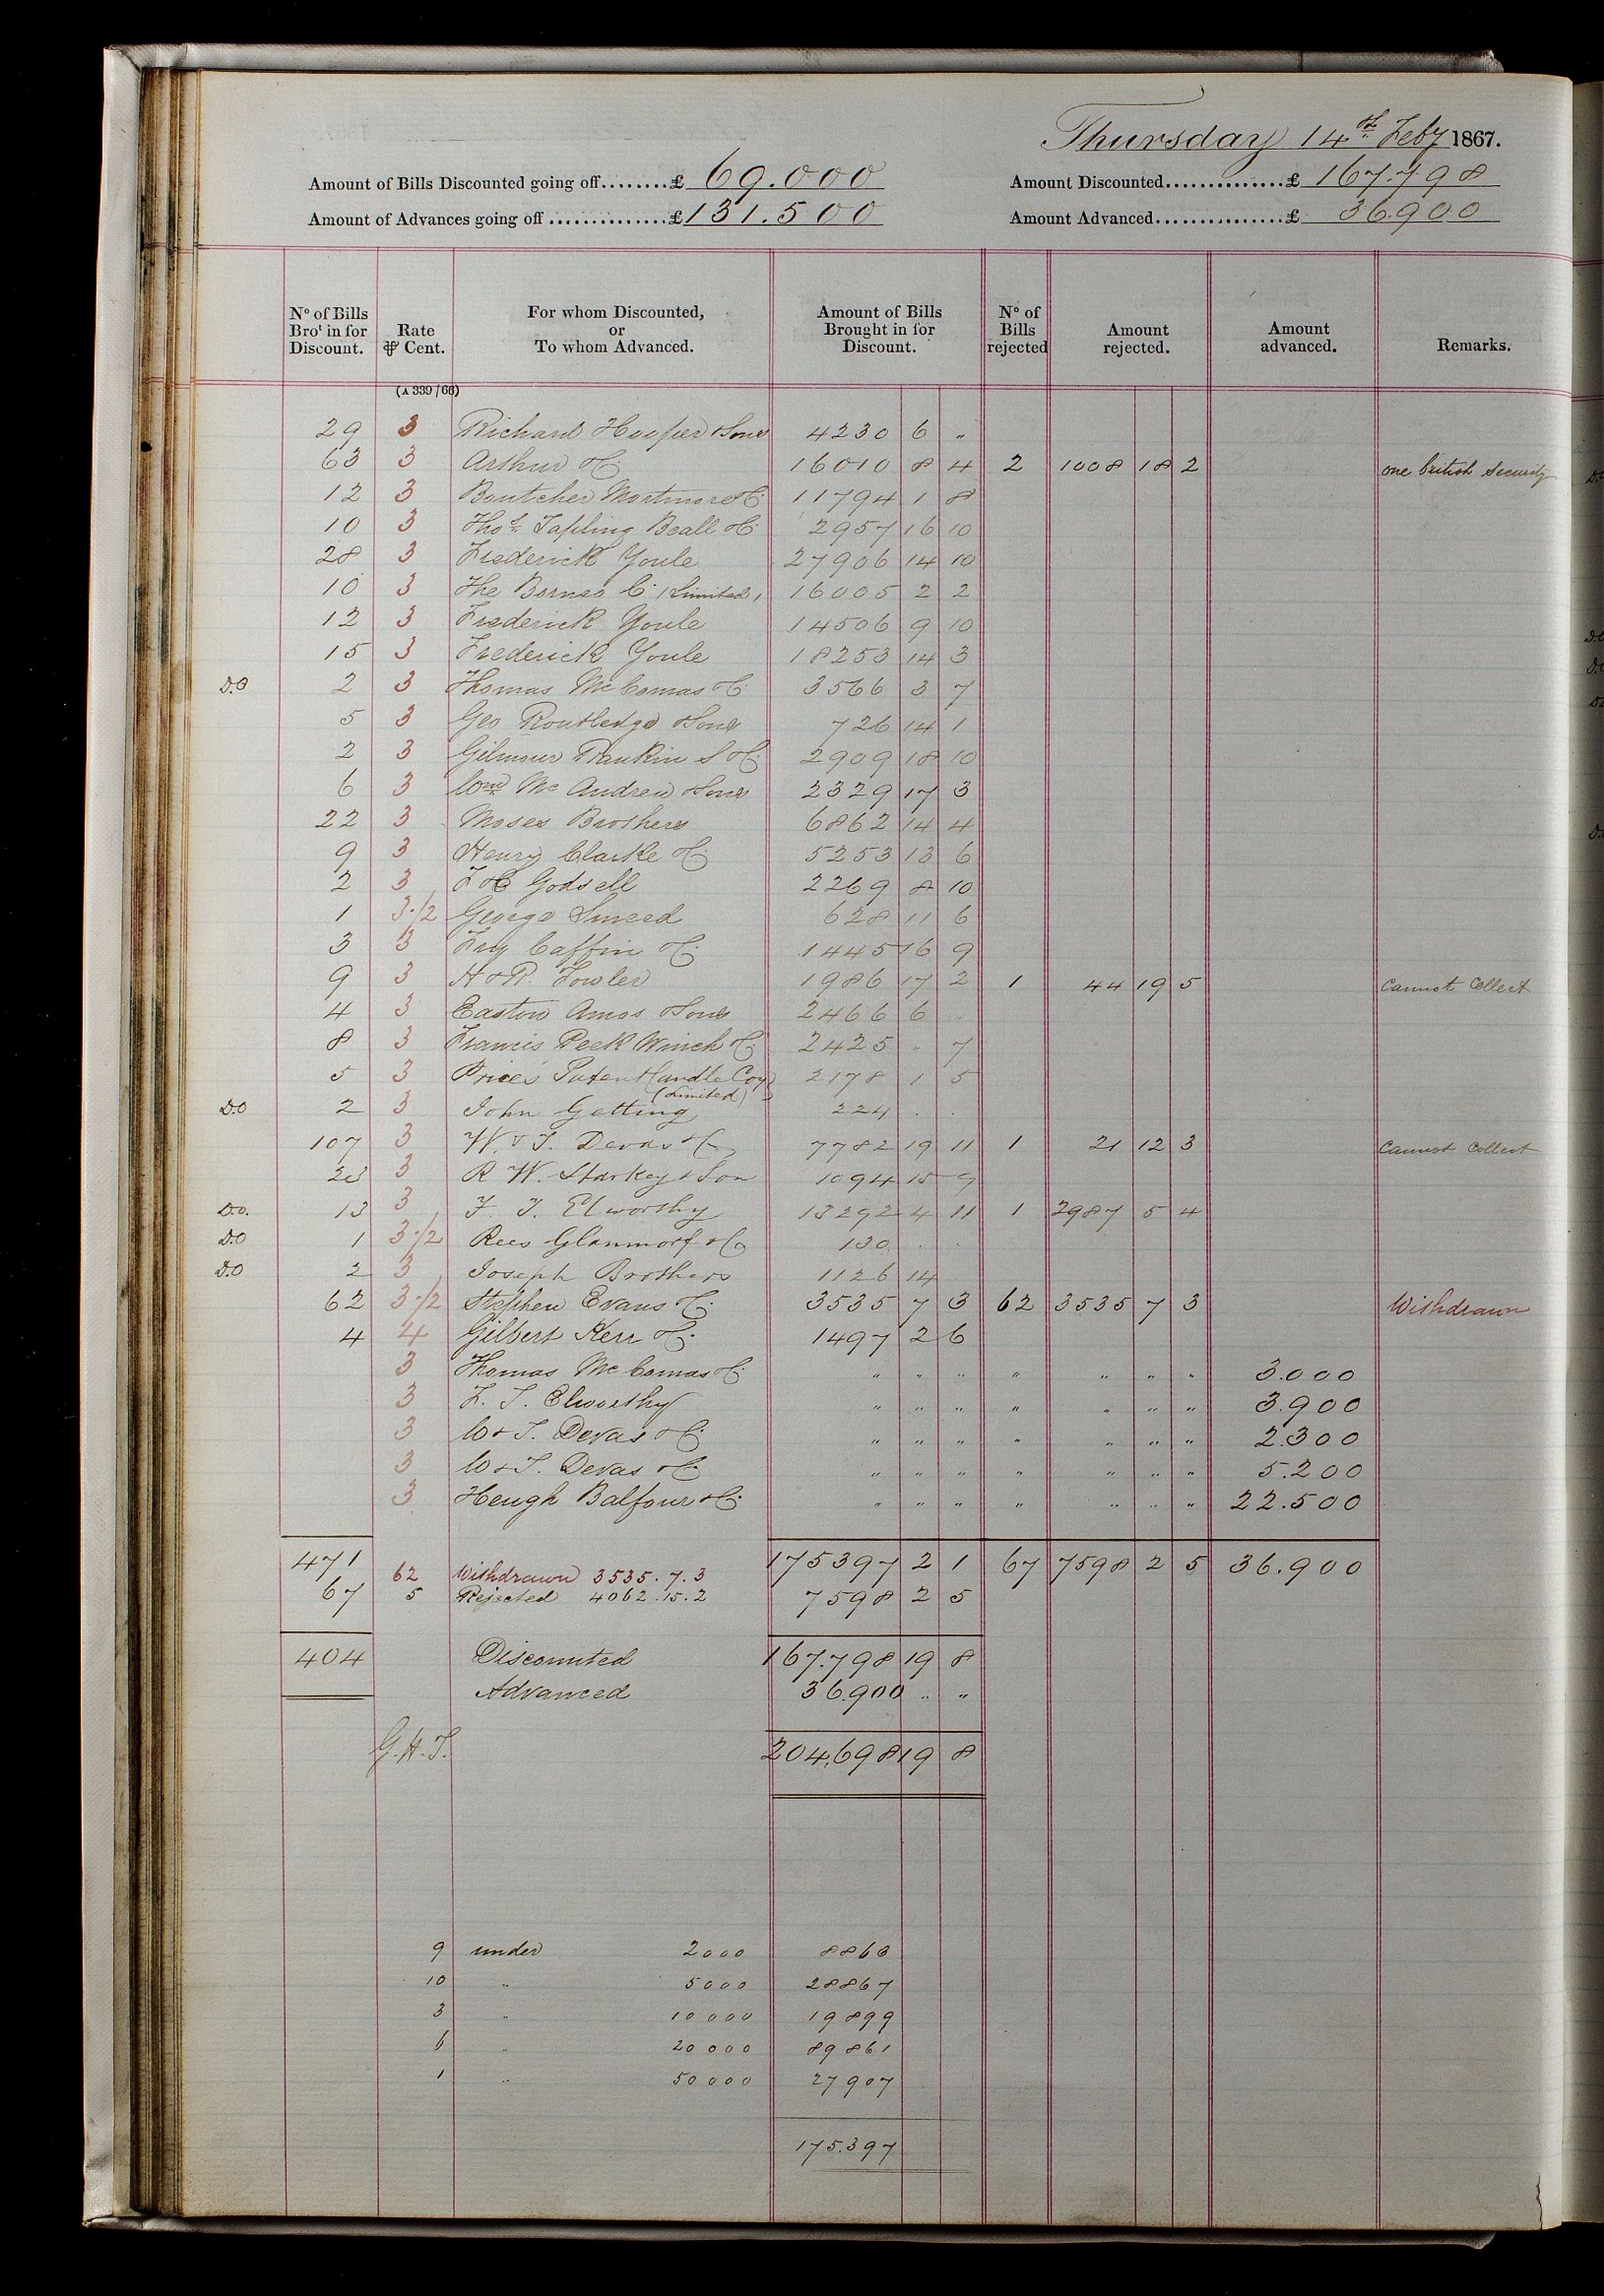 Thursday 14th Feby 1867.
Amount of Bills Discounted going off........£ 69.000 Amount Discounted...............£ 167.798
Amount of Advances going off ..............£ 131.500 Amount Advanced................£ 36.900
No of Bills Brot in for Discount. Rate ⅌ Cent. For whom Discounted, or To whom Advanced. Amount of Bills Brought in for Discount. No of Bills rejected Amount rejected. Amount advanced. Remarks.
(A 339/66)
29 3 Richard Hooper & Sons 4230 6 "
63 3 Arthur & Co. 16010 8 4 2 1008 18 2 one british security
12 3 Boutcher Mortimore & Co. 11794 1 8
10 3 Thos. Tapling Beall & Co. 2957 16 10
28 3 Frederick Youle 27906 14 10
10 3 The Borneo Co. (Limited) 16005 2 2
12 3 Frederick Youle 14506 9 10
15 3 Frederick Youle 18253 14 3
D.O 2 3 Thomas McComas & Co. 3566 3 7
5 3 Geo Routledge & Sons 726 14 1
2 3 Gilmour Rankin S & Co. 2909 18 10
6 3 Wm. McAndrew & Sons 2329 17 3
22 3 Moses Brothers 6862 14 4
9 3 Henry Clarke & Co. 5253 13 6
2 3 Godsell 2269 8 10
1 3·/2 George 628 11 6
3 3 Fry Caffin & Co. 1445 16 9
9 3 H & R. Fowler 1986 17 2 1 44 19 5 Cannot Collect
4 3 Easton Amos & Sons 2466 6 "
8 3 Francis Peek Winch & Co. 2425 " 7
5 3 Price's Patent Candle Coy 2178 1 5
(Limited)
D.O 2 3 John Getting 224 . .
107 3 W. & T. Devas & Co 7782 19 11 1 21 12 3 Cannot Collect
23 3 R W. Starkey & Son 1094 15 9
D.O. 13 3 F. T. Elworthy 13292 4 11 1 2987 5 4
D.O 1 3·/2 Rees Glanmorf & Co 130 . .
D.O 2 3 Joseph Brothers 1126 14
62 3·/2 Stephen Evans & Co. 3535 7 3 62 3535 7 3 Withdrawn
4 4 Gilbert Kerr & Co. 1497 2 6
3 Thomas McComas & Co. " " " " " " " 3.000
3 F. T. Elworthy " " " " " " " 3.900
3 W & T. Devas & Co. " " " " " " " 2.300
3 W & T. Devas & Co. " " " " " " " 5.200
3 Heugh Balfour & Co. " " " " " " " 22.500
471 175397 2 1 67 7598 2 5 36.900
62 Withdrawn 3535.7.3
67 5 Rejected 4062.15.2 7598 2 5
404 Discounted 167.798 19 8
Advanced 36.900 " "
G.H.T. 204,698 19 8
9 under 2000 8863
10 " 5000 28867
3 " 10000 19899
6 " 20000 89861
1 " 50000 27907
175.397